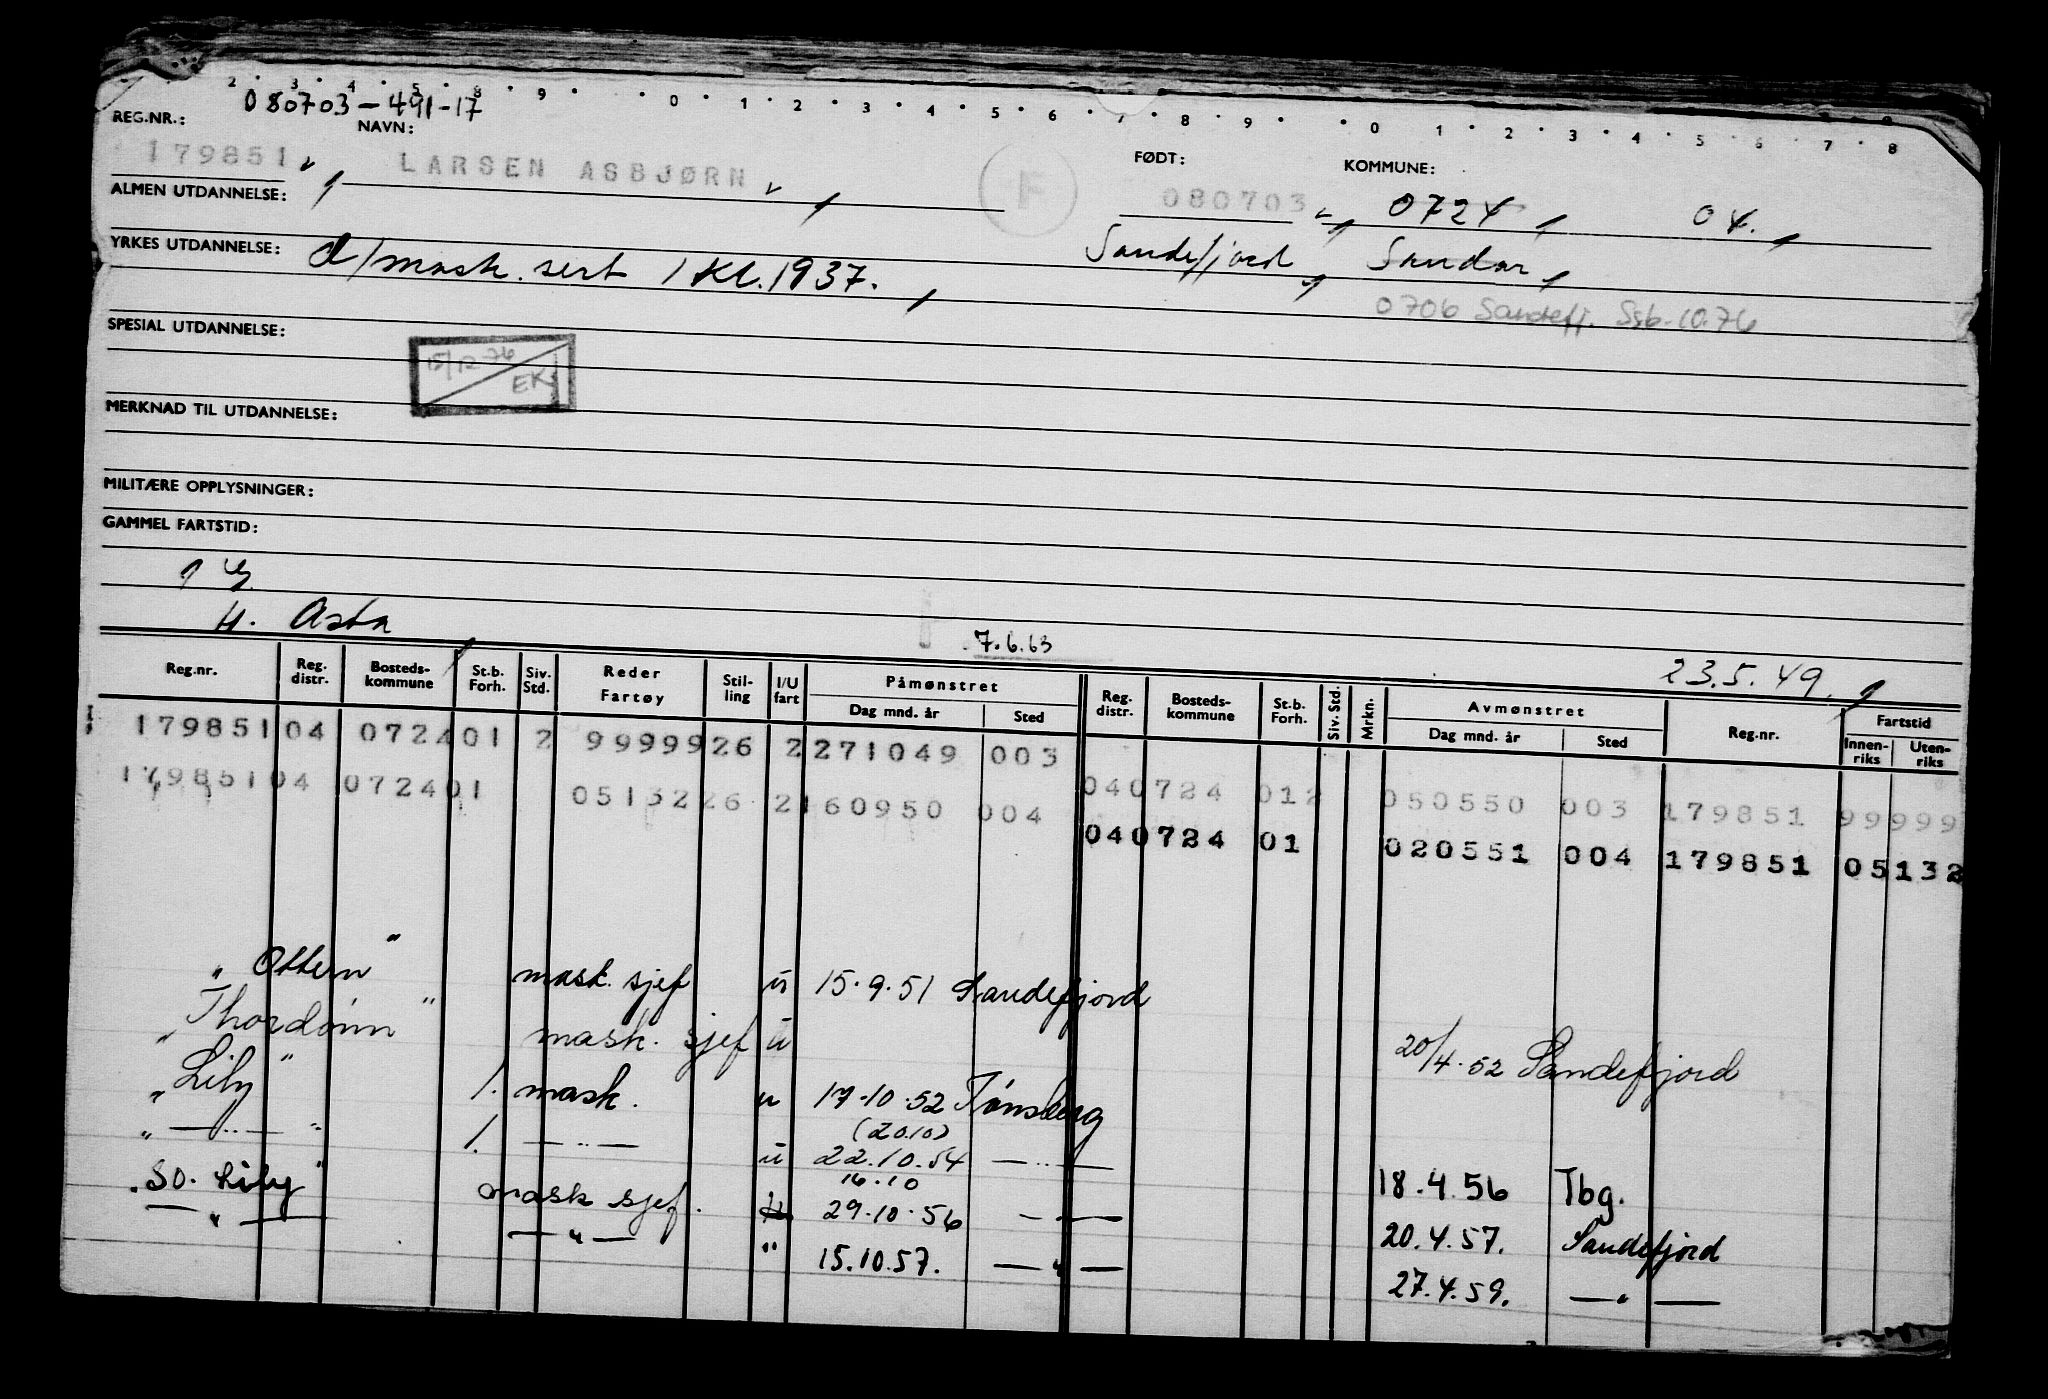 2 · 3 · 4 · 5 · 8 · 9 · · · 0 · 1 · 2 · 3 · 4 · 5 · 6 · 7 · 8 · 9 · · 0 · 1 · 2 · 3 · 4 · 5 · 6 · 7 · 8
REG.NR.: 080703-491-17
NAVN:
FØDT: KOMMUNE:
179851 LARSEN ASBJØRN F 080703 0724 04.
ALMEN UTDANNELSE:
Sandefjord, Sandar,
YRKES UTDANNELSE: d/mask. sert 1 Kl. 1937.
0706 Sandefj. Ssb. 10.76
SPESIAL UTDANNELSE:
15/12 76 EK
MERKNAD TIL UTDANNELSE:
MILITÆRE OPPLYSNINGER:
GAMMEL FARTSTID:
H. Asta
7.6.63
23.5.49.
Reg.nr. Reg. distr. Bosteds-kommune St.b. Forh. Siv. Std. Reder Fartøy Stil-ling I/U fart Påmønstret Dag mnd. år Sted Reg. distr. Bosteds-kommune St.b. Forh. Siv. Std. Mrkn. Avmønstret Dag mnd. år Sted Reg.nr. Fartstid Innen-riks Uten-riks
179851 04 0724 01 2 99999 26 2 271049 003
040724 012 050550 003 179851 99999
179851 04 0724 01 05132 26 2 160950 004
040724 01 020551 004 179851 05132
"Ottern" mask. sjef u 15.9.51 Sandefjord
"Thordønn" mask. sjef u 20/4.52 Sandefjord
"Lily" 1. mask. u 17.10.52 Tønsberg
(20.10)
" — .. — " 1. — .. — u 22.10.54 — .. — 18.4.56 Tbg.
16.10
"SO. Lily" mask sjef. u 29.10.56 — — 20.4.57. Sandefjord
— " — — " — " 15.10.57. — " — 27.4.59. — " —